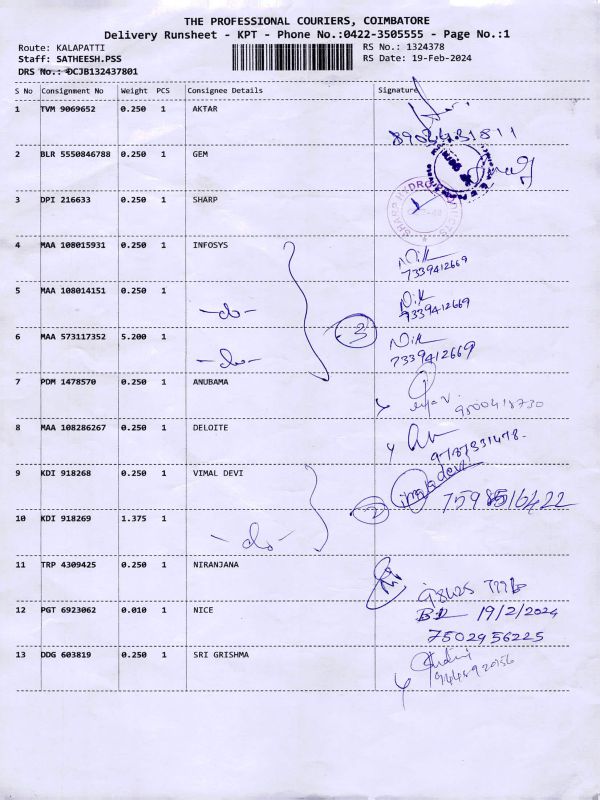 THE PROFESSIONAL COURIERS, COIMBATORE
Delivery Runsheet - KPT - Phone No.:0422-3505555 - Page No.:1
Route: KALAPATTI RS No.: 1324378
Staff: SATHEESH.PSS RS Date: 19-Feb-2024
DRS No.: DCJB132437801
S No Consignment No Weight PCS Consignee Details Signature
1 TVM 9069652 0.250 1 AKTAR
2 BLR 5550846788 0.250 1 GEM
3 DPI 216633 0.250 1 SHARP
4 MAA 108015931 0.250 1 INFOSYS
7339412669
5 MAA 108014151 0.250 1 -do-
9339412669
6 MAA 573117352 5.200 1 -do- 3
7339412669
7 PDM 1478570 0.250 1 ANUBAMA
8 MAA 108286267 0.250 1 DELOITE
9 KDI 918268 0.250 1 VIMAL DEVI
10 KDI 918269 1.375 1 -do- 2
11 TRP 4309425 0.250 1 NIRANJANA
12 PGT 6923062 0.010 1 NICE
19/2/2024
7502956225
13 DDG 603819 0.250 1 SRI GRISHMA